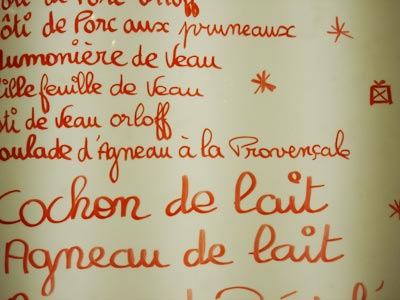 ôti de Porc aux pruneaux
umonière de Veau
ille feuille de Veau
ti de Veau orloff
oulade d'Agneau à la Provençale
Cochon de lait
Agneau de lait